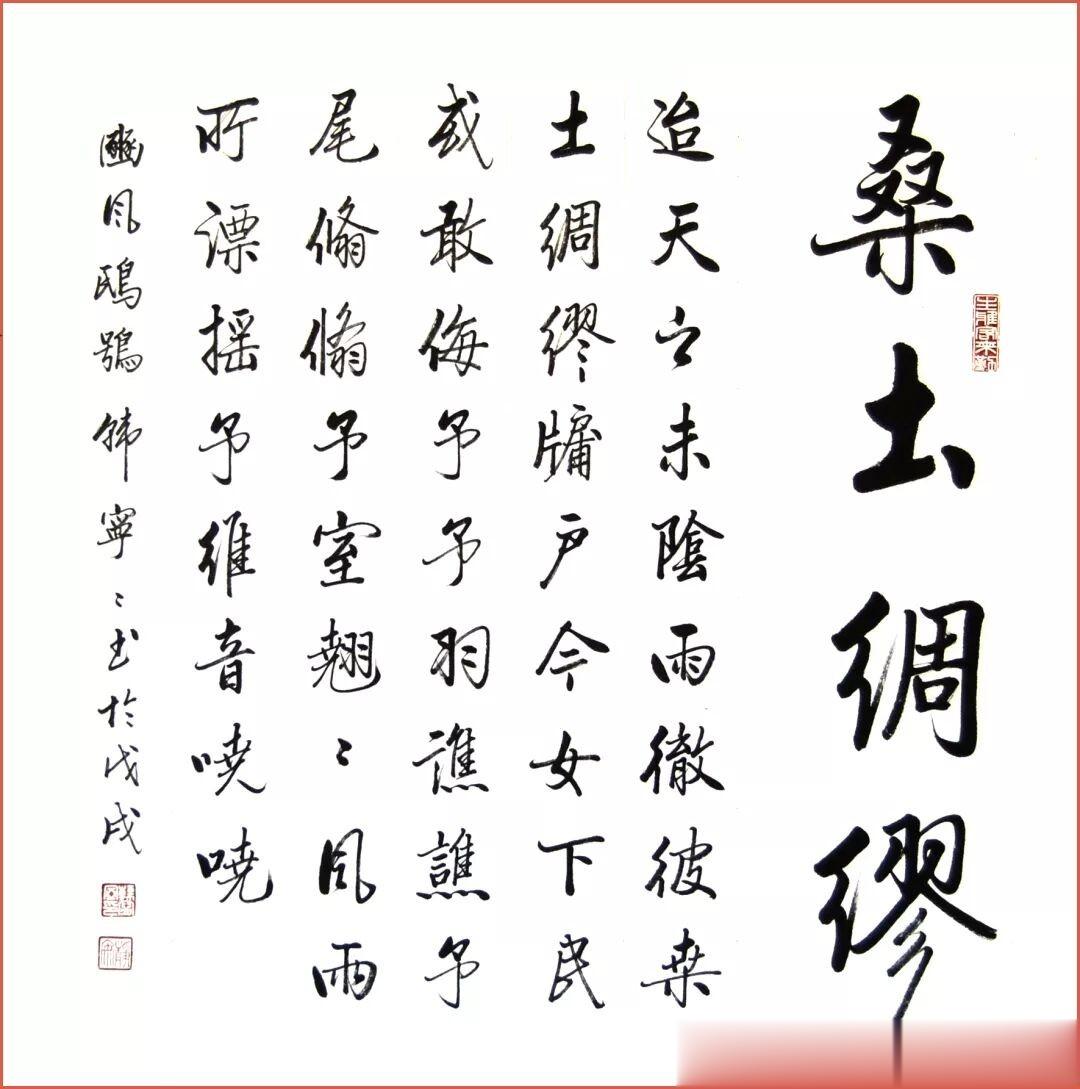 桑土綢繆
迨天之未陰雨徹彼桒
土綢繆牖戶今女下民
或敢侮予予羽譙譙予
尾翛翛予室翹〻風雨
所漂搖予維音嘵嘵
豳風鴟鴞韩寧〻书於戊戌